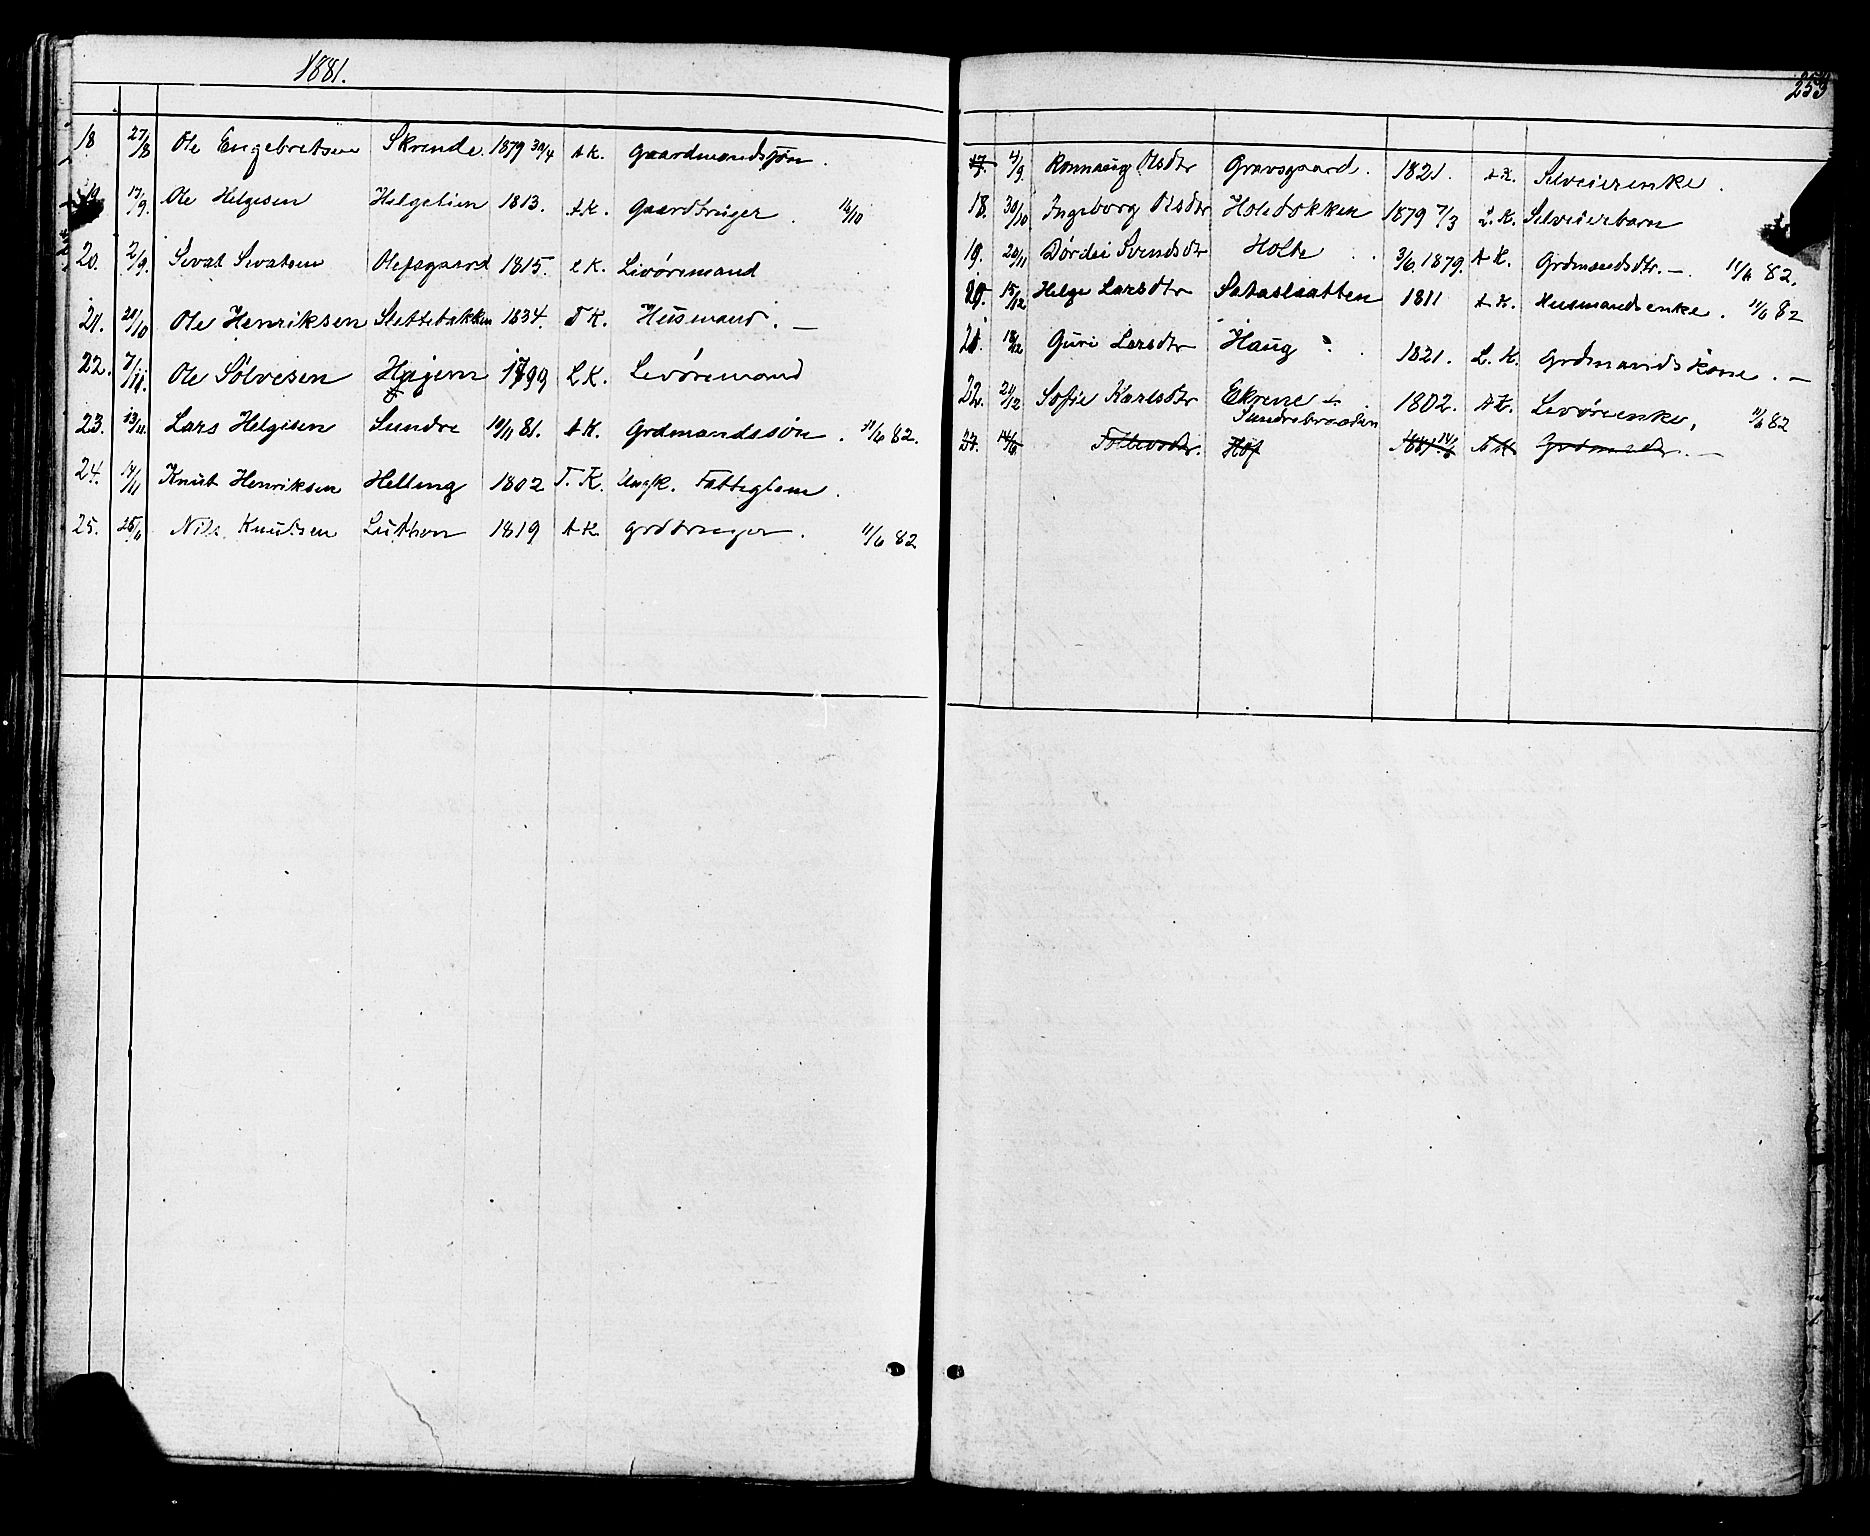 1881.
18 27/8 Ole Engebretsen Skrinde. 1879 30/4 A.K. Gaardmandssøn.
19 17/9. Ole Helgesen Helgelien 1813. A.K. Gaardbruger. 14/10
20. 2/9. Sevat Sevatsen Olefsgaard 1815. L K. Livøremand
21. 20/10 Ole Henriksen Slettebakken 1834. T K. Husmand. —
22. 7/11. Ole Sølvesen Hagem 1799 L K. Levøremand
23. 13/11. Lars Helgesen Sundre 10/11 81. A.K. Grdmandssøn. 11/6 82.
24. 14/11 Knut Henriksen Helling 1802 T. K. Ungk. Fattiglem.
25. 25/11 Nils Knudsen 1819 A K. grdbruger. 11/6 82
253
17. 4/9. Rønnaug Olsdtr Gravsgaard. 1821. A.K. Selveierenke.
18. 30/10 Ingeborg Olsdtr Holebakken 1879 7/3 L.K. Selveierbarn
19. 20/11 Dordei Svendsdtr Holte 3/6. 1879. A K. Grdmandsdtr. —. 11/6 82.
20. 15/12 Helge Larsdtr Sataslaatten 1811 A.K. Husmandsenke. 11/6 82
21. 18/12 Guri Larsdtr Haug 1821. L. K. Grdmandskone. —
22. 21/12 Sofie Karlsdtr Ekrene 1802. A.K. Levøreenke, 11/6 82
Sundrebraaten
14/6 Tollevsdtr. Hof 1881 14/6 A K Grdm dtr. —